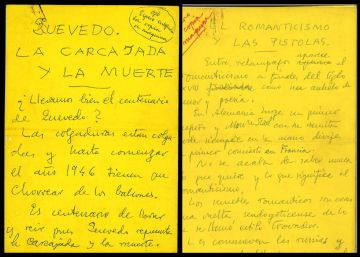 QUEVEDO.
LA CARCAJADA
Y LA MUERTE
¿Llevamos bien el centenario
de Quevedo?
Las colgaduras están colga
das y hasta comenzar
el año 1946 tienen que
chorrear de los balcones.
Es centenario de llorar
y reir pues Quevedo representa
la carcajada y la muerte.
EL ROMANTICISMO
LAS PISTOLAS.
Entre relámpagos aparece
romanticismo a finales del siglo
XVIII como una anhelo de
amor y poesía.
En Alemania surge un primer
y Mme Stael
siempre en
primer comienzo en Francia.
No se acaba de saber nunca
que quita y lo que significa el
romanticismo.
Los muebles románticos son como
una vuelta
se llamó estilo trovador.
Les conmueven las ruinas y